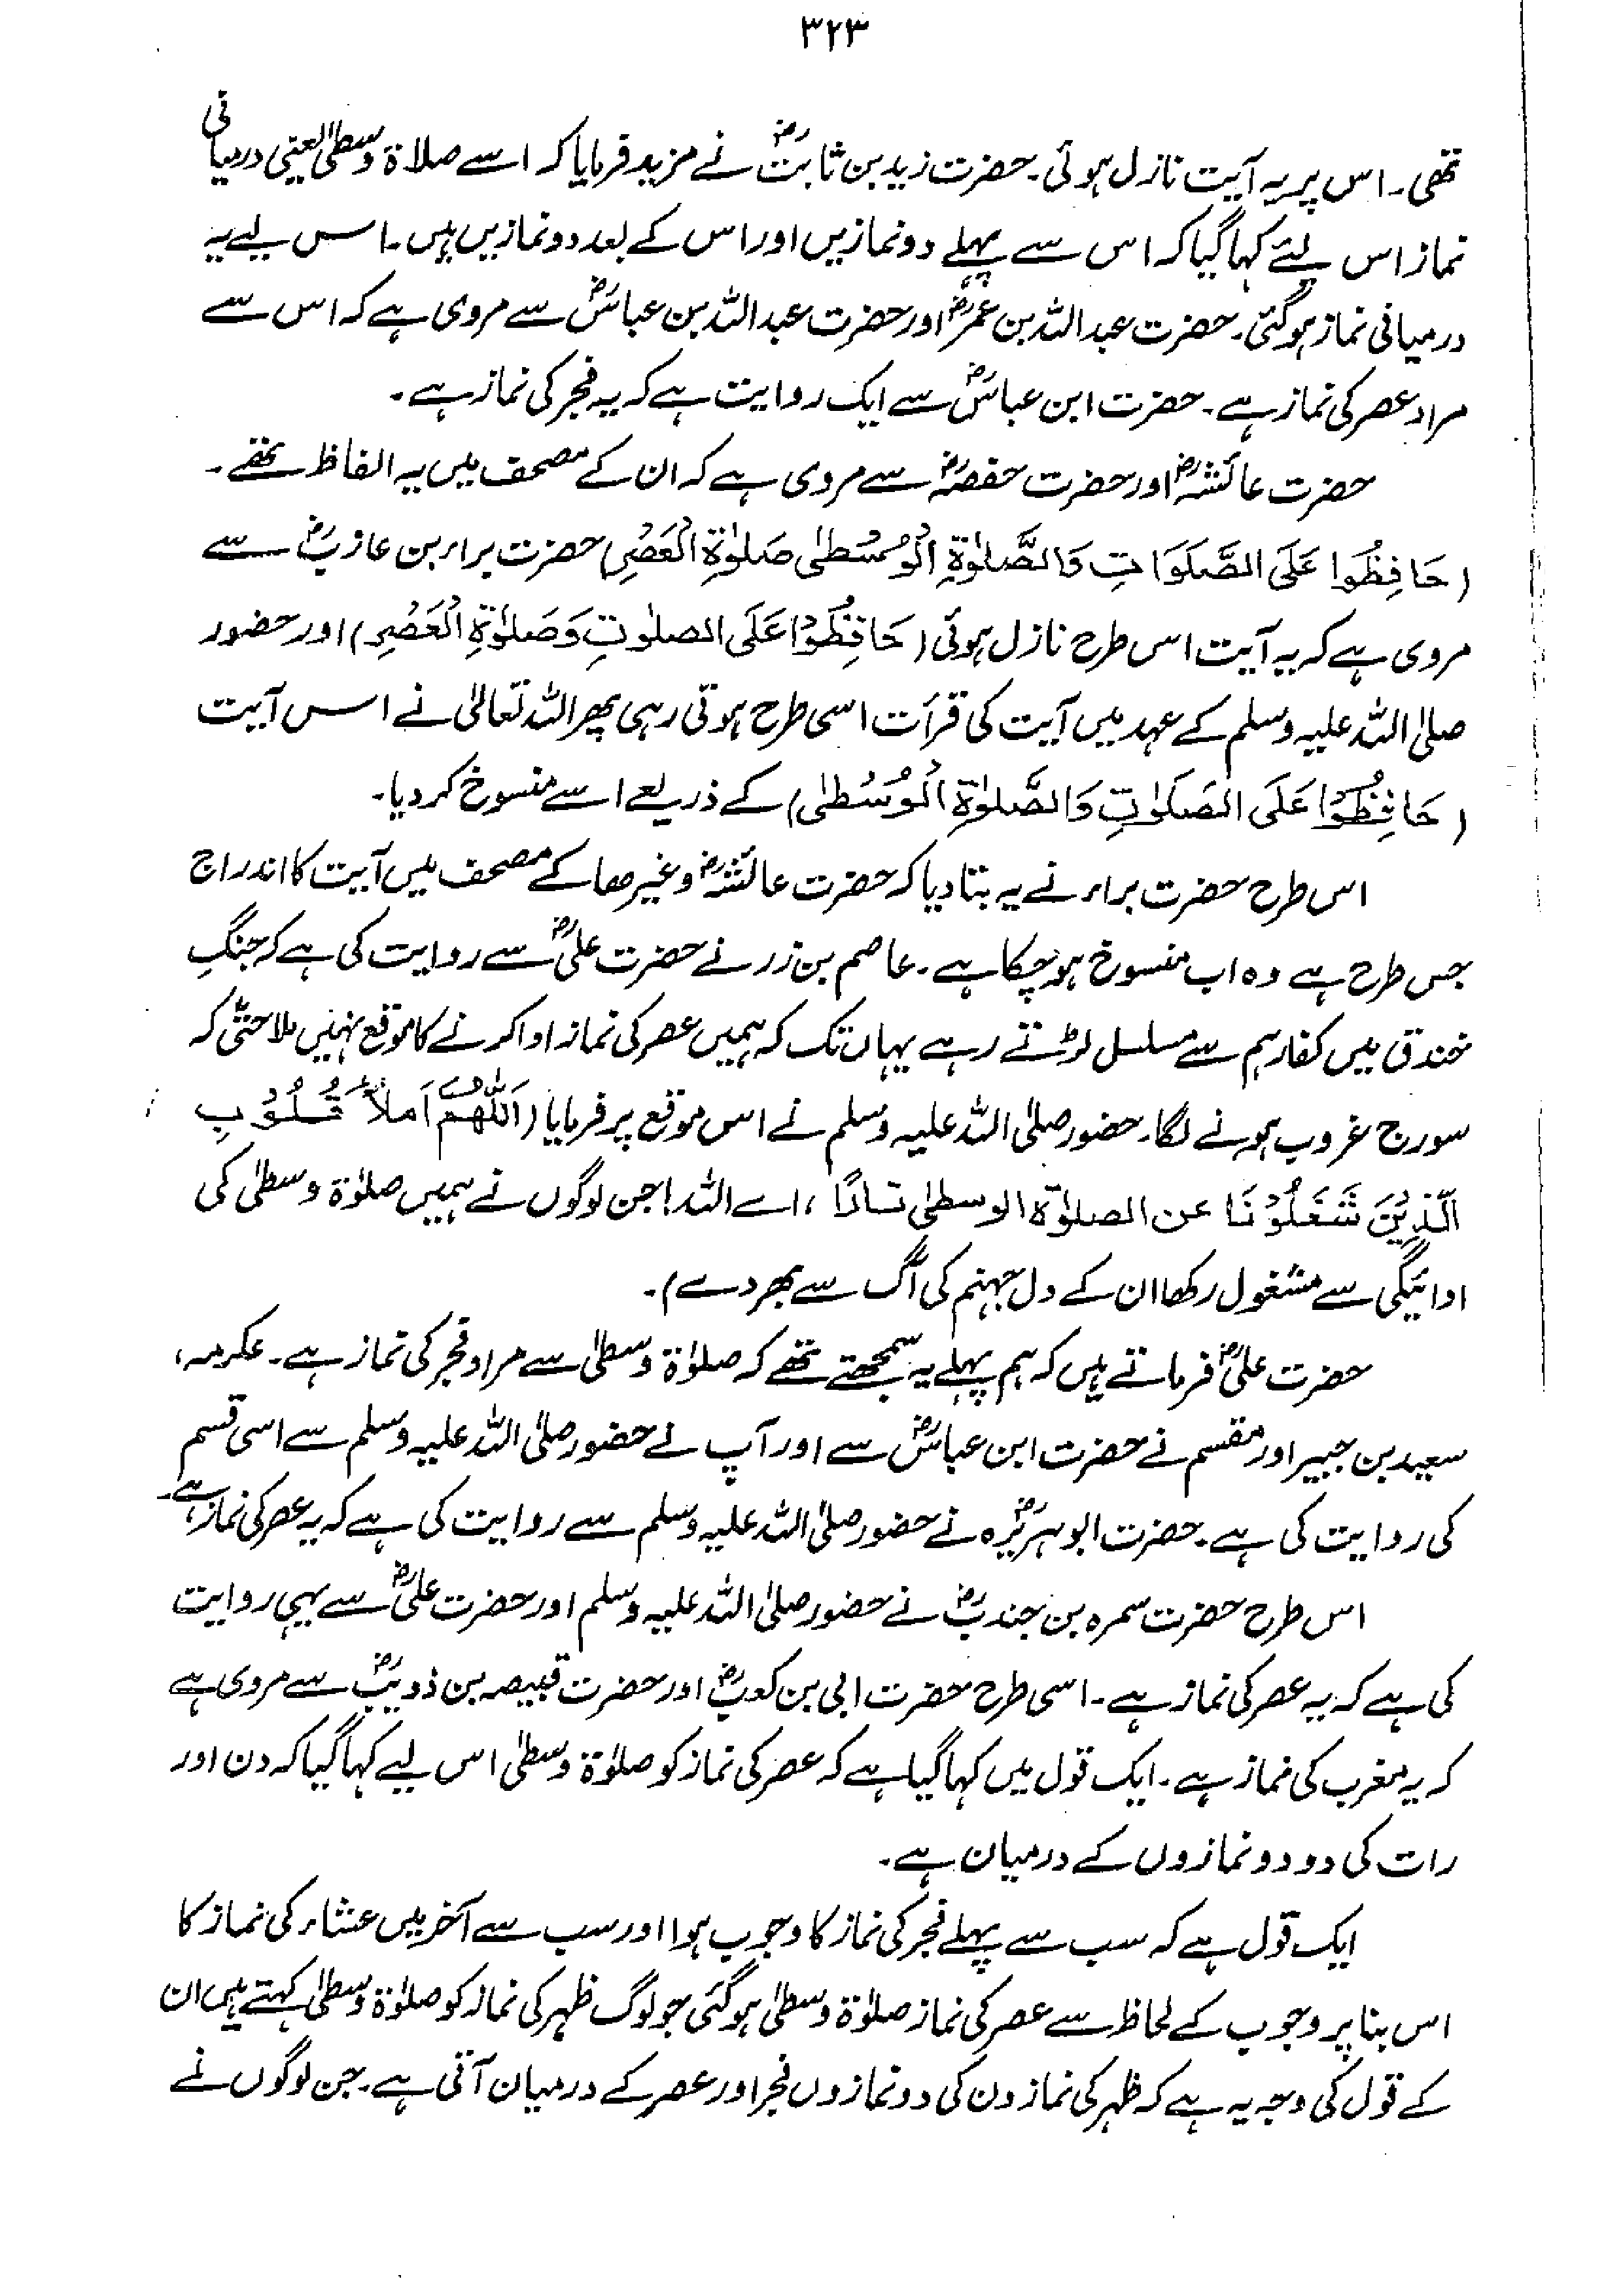 ۳۲۳
تھی۔ اس پر یہ آیت نازل ہوئی۔ حضرت زید بن ثابتؓ نے مزید فرمایا کہ اسے صلاۃ وسطیٰ یعنی درمیانی
نماز اس لئے کہا گیا کہ اس سے پہلے دو نمازیں اور اس کے بعد دو نمازیں ہیں۔ اس لیے یہ
درمیانی نماز ہوگئی۔ حضرت عبداللہ بن عمرؓ اور حضرت عبداللہ بن عباسؓ سے مروی ہے کہ اس سے
مراد عصر کی نماز ہے۔ حضرت ابن عباسؓ سے ایک روایت ہے کہ یہ فجر کی نماز ہے۔
حضرت عائشہؓ اور حضرت حفصہؓ سے مروی ہے کہ ان کے مصحف میں یہ الفاظ تھے۔
(حَافِظُوا عَلَى الصَّلَوَاتِ وَالصَّلوٰةِ الْوُسْطىٰ صَلوٰةِ الْعَصْرِ) حضرت براء بن عازبؓ سے
مروی ہے کہ یہ آیت اس طرح نازل ہوئی (حَافِظُوْا عَلَى الصلوٰتِ وَصَلوٰةِ الْعَصْرِ) اور حضور
صلی اللہ علیہ وسلم کے عہد میں آیت کی قرأت اسی طرح ہوتی رہی پھر اللہ تعالیٰ نے اس آیت
(حَافِظُوْا عَلَى الصَلَوٰتِ وَالصَّلوٰةِ الْوُسْطىٰ) کے ذریعے اسے منسوخ کردیا۔
اس طرح حضرت براء نے یہ بتا دیا کہ حضرت عائشہؓ وغیرھا کے مصحف میں آیت کا اندراج
جس طرح ہے وہ اب منسوخ ہوچکا ہے۔ عاصم بن زر نے حضرت علیؓ سے روایت کی ہے کہ جنگِ
خندق میں کفار ہم سے مسلسل لڑتے رہے یہاں تک کہ ہمیں عصر کی نماز ادا کرنے کا موقع نہیں ملا حتیٰ کہ
سورج غروب ہونے لگا۔ حضور صلی اللہ علیہ وسلم نے اس موقع پر فرمایا (اَللّٰهُمَّ اَملأ قُلُوْبِ
الَّذِيْنَ شَغَلُوْنَا عن الصلوٰة الوسطىٰ نارًا، اے اللہ! جن لوگوں نے ہمیں صلوٰۃ وسطیٰ کی
ادائیگی سے مشغول رکھا ان کے دل جہنم کی آگ سے بھر دے)۔
حضرت علیؓ فرماتے ہیں کہ ہم پہلے یہ سمجھتے تھے کہ صلوٰۃ وسطیٰ سے مراد فجر کی نماز ہے۔ عکرمہ،
سعید بن جبیر اور مقسم نے حضرت ابن عباسؓ سے اور آپ نے حضور صلی اللہ علیہ وسلم سے اسی قسم
کی روایت کی ہے۔ حضرت ابوہریرہؓ نے حضور صلی اللہ علیہ وسلم سے روایت کی ہے کہ یہ عصر کی نماز ہے۔
اس طرح حضرت سمرہ بن جندبؓ نے حضور صلی اللہ علیہ وسلم اور حضرت علیؓ سے یہی روایت
کی ہے کہ یہ عصر کی نماز ہے۔ اسی طرح حضرت ابی بن کعبؓ اور حضرت قبیصہ بن ذویبؓ سے مروی ہے
کہ یہ مغرب کی نماز ہے۔ ایک قول میں کہا گیا ہے کہ عصر کی نماز کو صلوٰۃ وسطیٰ اس لیے کہا گیا کہ دن اور
رات کی دو دو نمازوں کے درمیان ہے۔
ایک قول ہے کہ سب سے پہلے فجر کی نماز کا وجوب ہوا اور سب سے آخر میں عشاء کی نماز کا
اس بنا پر وجوب کے لحاظ سے عصر کی نماز صلوٰۃ وسطیٰ ہوگئی جو لوگ ظہر کی نماز کو صلوٰۃ وسطیٰ کہتے ہیں ان
کے قول کی وجہ یہ ہے کہ ظہر کی نماز دن کی دو نمازوں فجر اور عصر کے درمیان آتی ہے۔ جن لوگوں نے